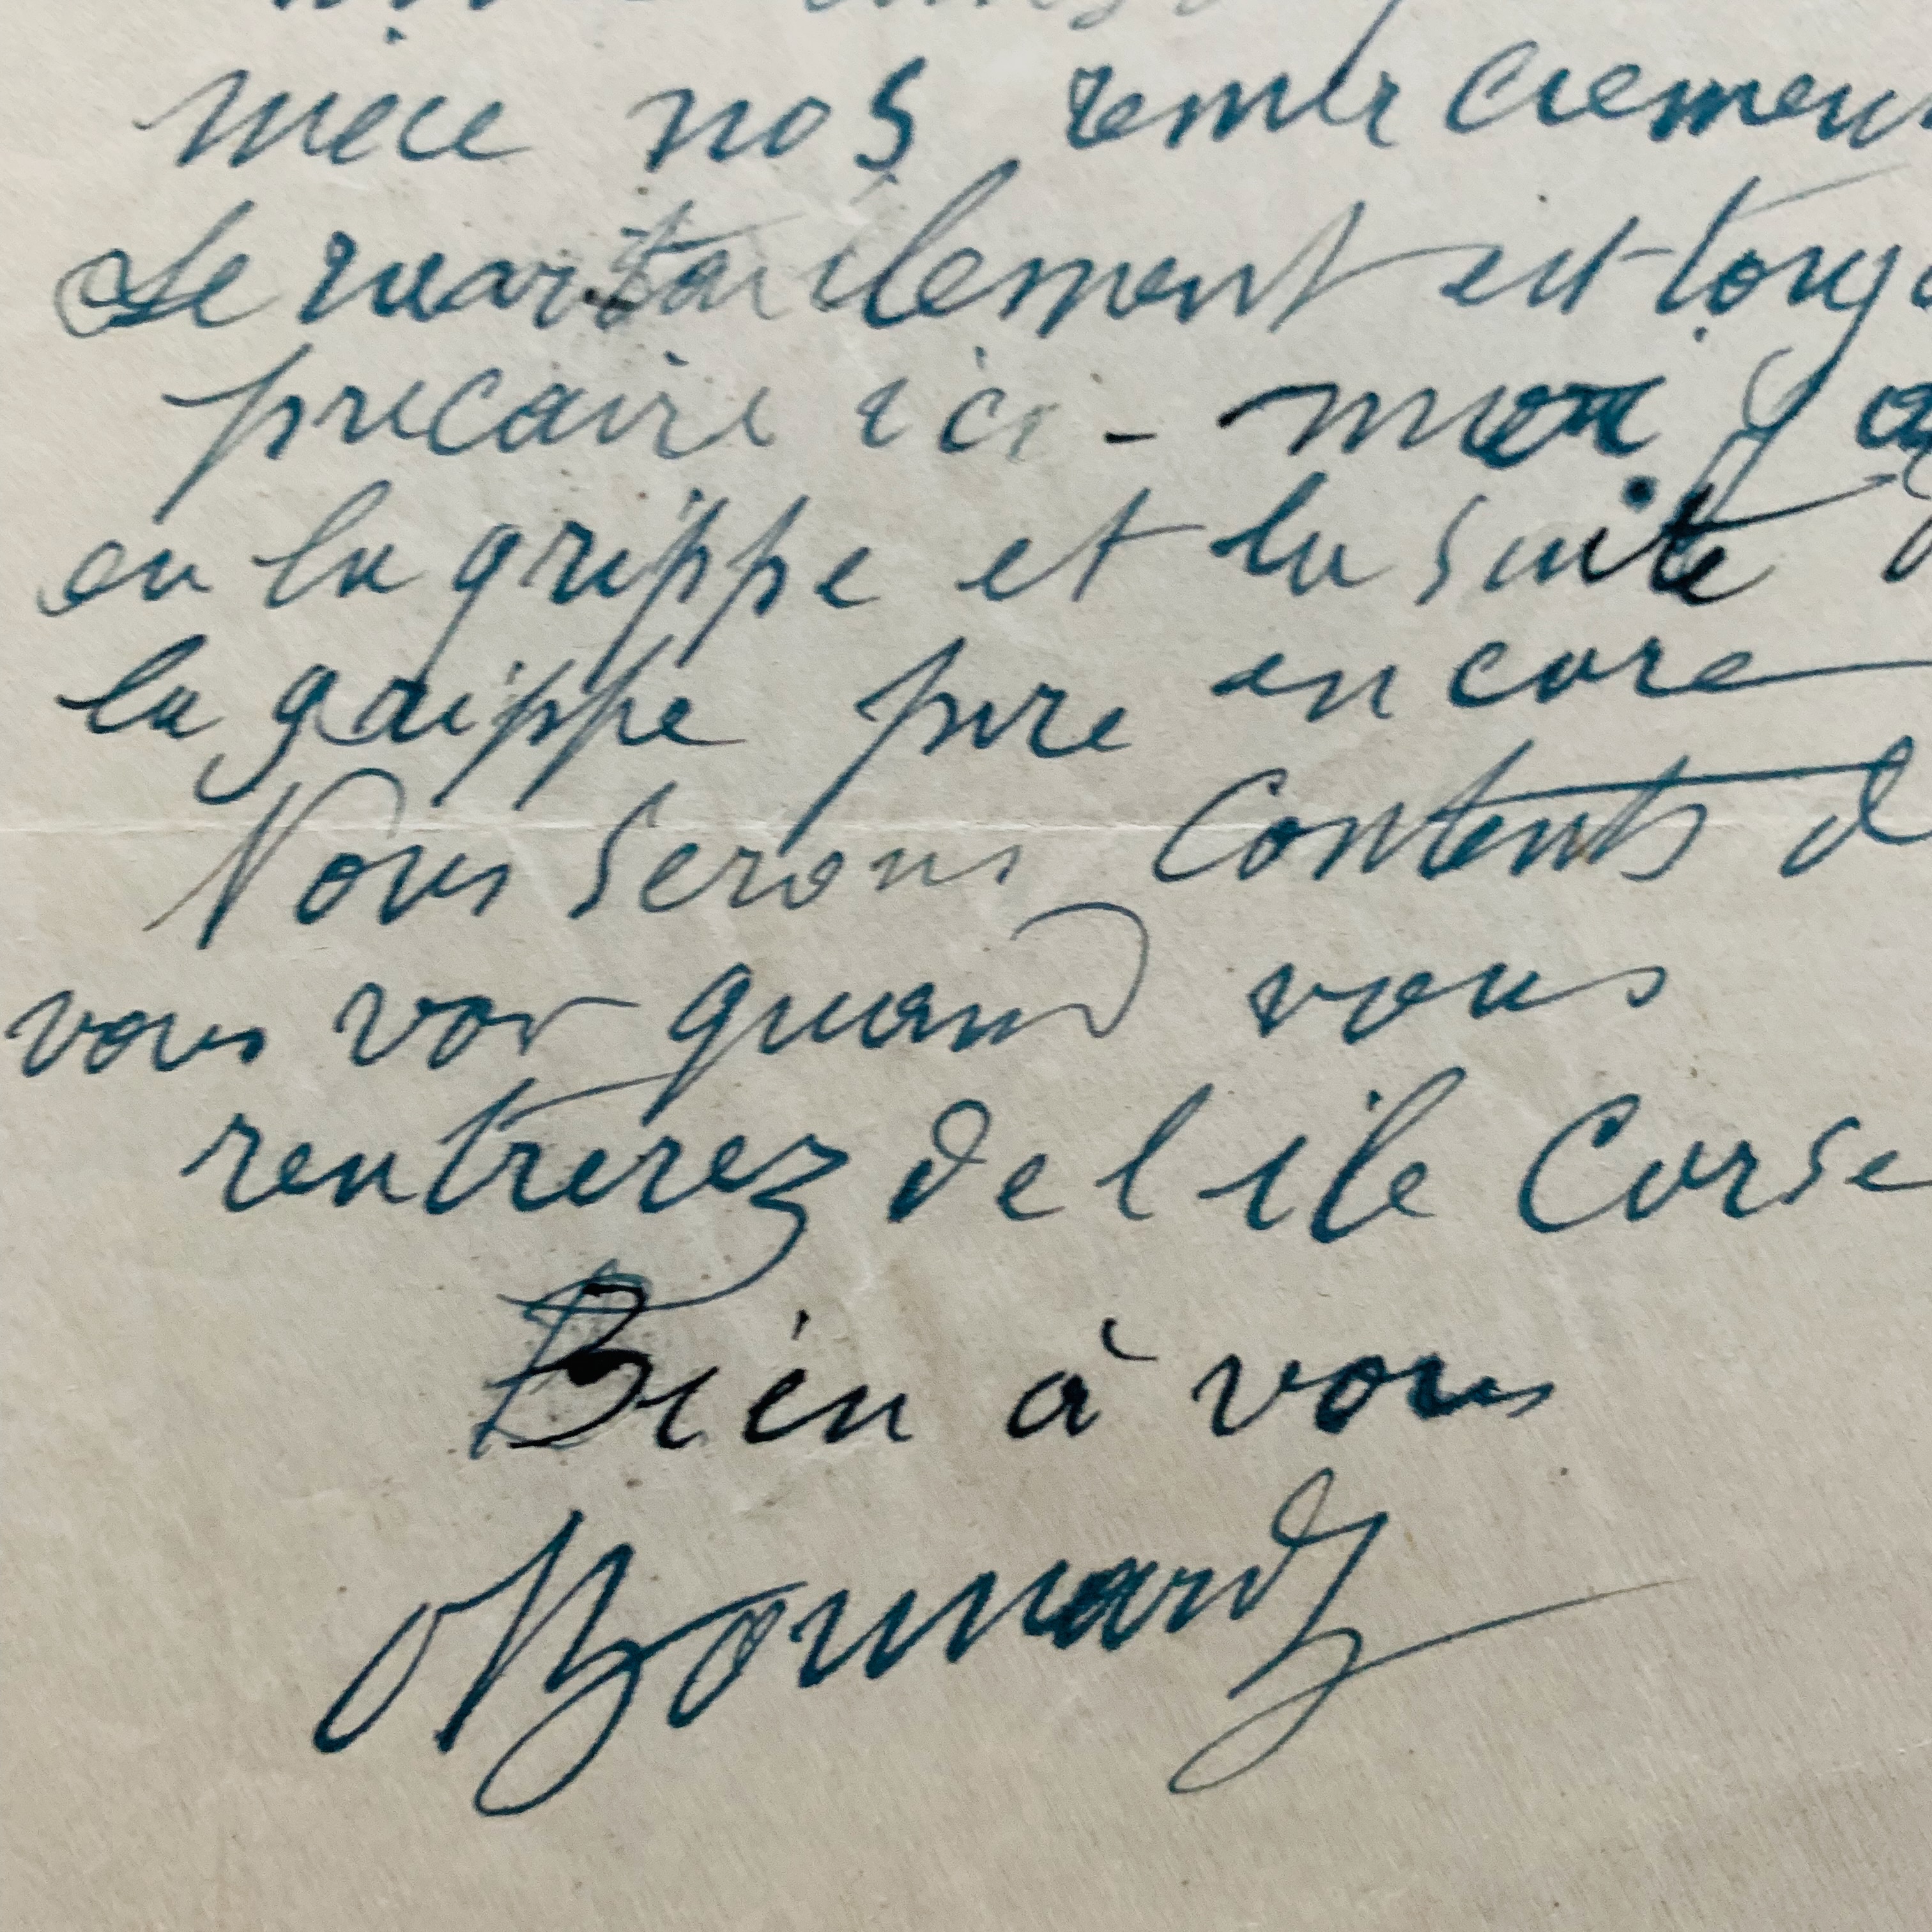 niece nos remerciemen
Le ravitaillement est touj
precaire ici - moi j
eu la grippe et la suite
la grippe pire encore
Nous serons contents d
vous voir quand vous
rentrerez de l ile Corse
Bien à vous
Bonnard